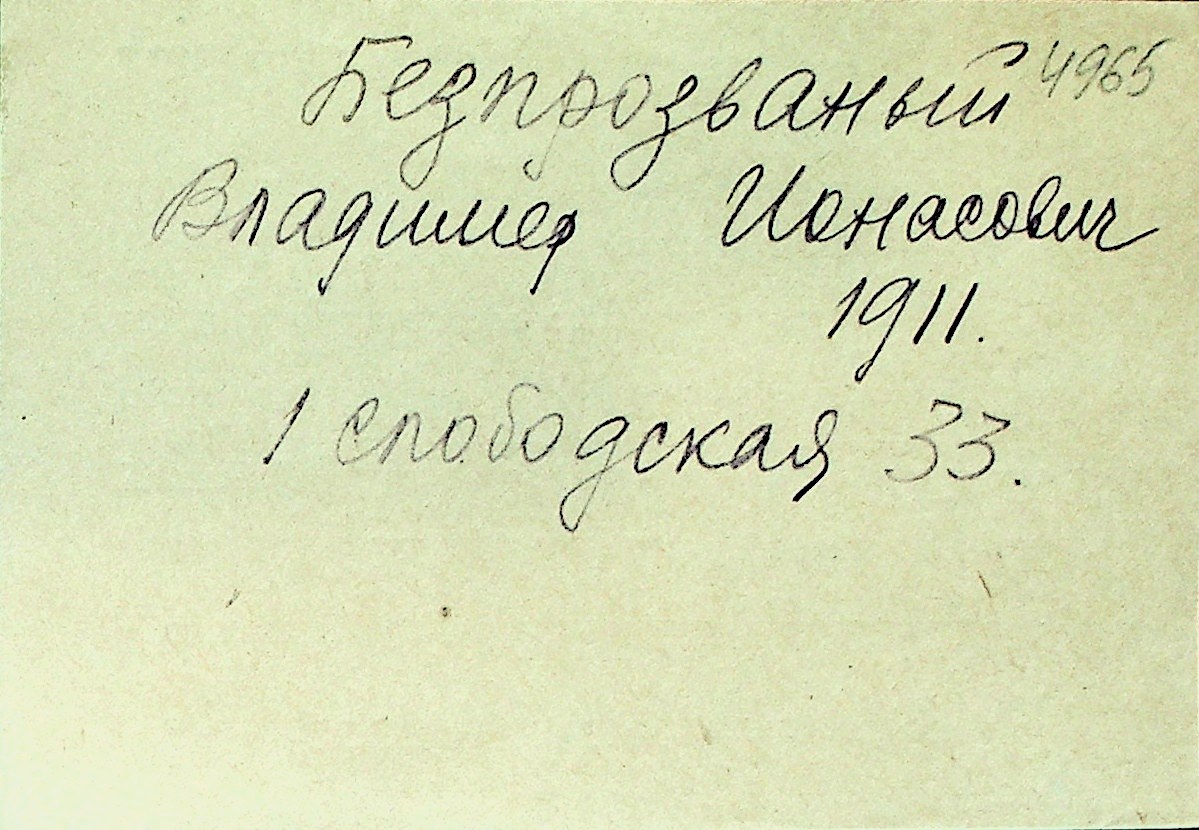 Безпрозваный 4965
Владимер Ионасович
1911.
1 слободская 33.